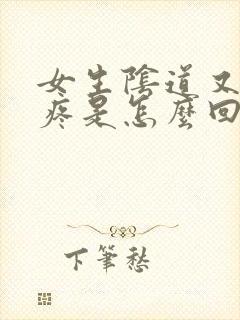 女生陰道又
疼是怎麼回
下筆愁